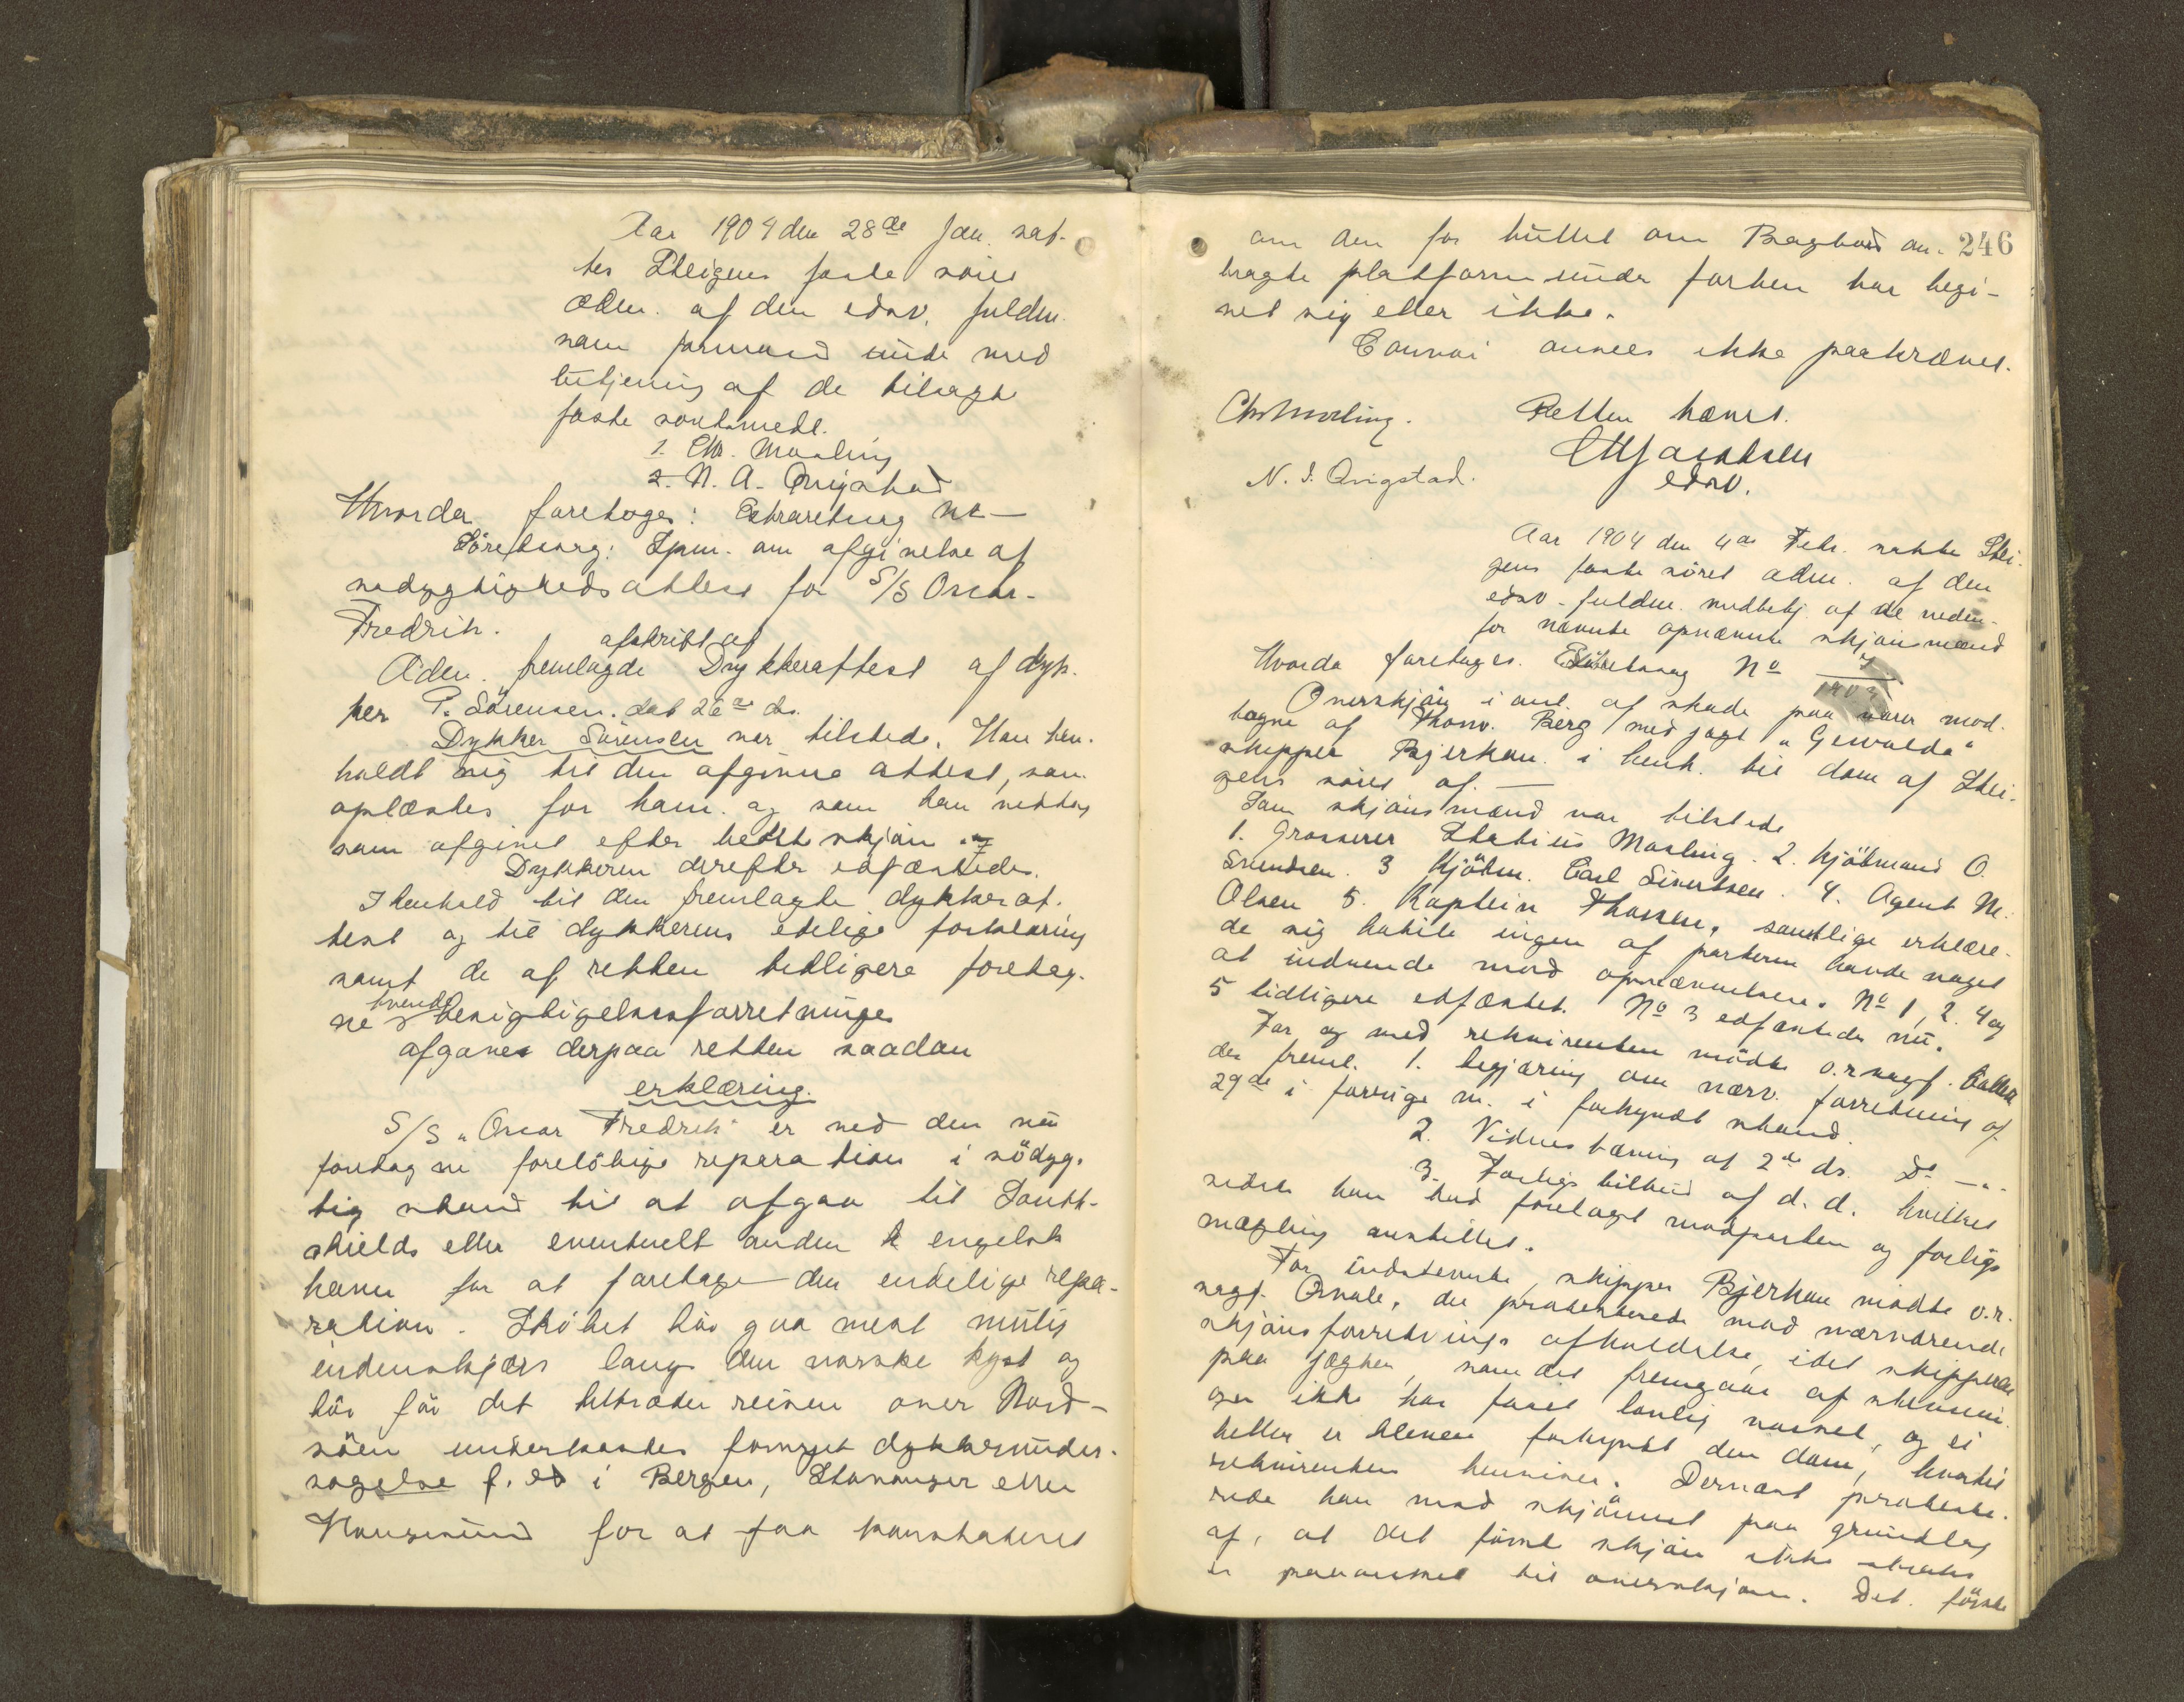 Aar 1904 den 28de Jan. sat-
tes Steigens faste söret
adm. af den edsv. fuldm.
som formand unde med
betjening af de tilsagte
faste vont.medl.
1. Chr. Maaling
2. N. A. Qvigstad
Hvorda foretoges: Extraretssag No —
Söretssag: Spm. om afgivelse af
sødygtighedsattest for S/S Oscar-
Fredrik.
afskrift af
Adm. fremlagde Dykkerattest af dyk-
ker P. Sörensen dat 26de ds.
Dykker Sörensen var tilstede. Han hen-
holdt sig til den afgivne attest, som
oplæstes for ham og som han vedtog
som afgivet efter bedste skjön.
Dykkeren derefter edfæstedes.
I henhold til den fremlagte dykkerat-
test og til dykkerens edelige forklaring
samt de af retten tidligere foretag-
ne tvende besigtigelsesforretninger
afgaves derpaa retten saadan
erklæring.
S/S "Oscar Fredrik" er ved den nu
foretagne foreløbige reparation i södyg-
tig stand til at afgaa til South-
shields eller eventuelt anden engelsk
havn for at foretage den endelige repa-
ration. Skibet bör gaa mest mulig
indenskjærs langs den norske kyst og
bör för det tiltræder reisen over Nord-
söen underkastes fornyet dykkerunder-
søgelse f. ex i Bergen, Stavanger eller
Haugesund for at faa konstateret
246
om den for hullet om Bagbord an-
bragte platform under farten har begi-
vet sig eller ikke.
Convoi ansees ikke paakrævet.
Chr Maaling. Retten hævet.
N. A. Qvigstad. CM Jacobsen
edsv.
Aar 1904 den 4de Febr. sattes Stei-
gens faste söret adm. af den
edsv. fuldm. medbetj. af de neden-
for nævnte opnævnte skjönsmænd
Hvorda foretages. Söretssag No
1903
Overskjön i anl. af skade paa varer mod-
tagne af Thorv. Berg med jagt "Gewalda"
skipper Bjerkan i henh. til dom af Stei-
gens söret af. —
Som skjönsmænd var tilstede
1. Grosserer Statius Maaling. 2. Kjöbmand O.
Svendsen. 3 Kjöbm. Carl Sivertsen. 4. Agent M.
Olsen 5. Kaptein Thossen, samtlige erklære-
de sig habile ingen af parterne havde noget
at indvende mod opnævnelsen. No 1, 2. 4 og
5 tidligere edfæstet. No 3 edfæstedes nu.
For og med rekvirenten mödte o.r.sagf.
der freml. 1. begjæring om nærv. forretning af
29de i forrige m. i forkyndt stand.
2. Vidnestævning af 2de ds. Do —"-
3. Forligstilbud af d. d. hvilket
sidste han bad forelagt modparten og forligs
mægling anstillet.
For indstevnte, skipper Bjerkan mödte o.r.
sagf. Qvale, der protesterede mod nærværende
skjönsforretnings afholdelse, idet skipperen
paa jægten, som det fremgaar af stevnin-
gen ikke har faaet lovlig varsel, og ei
heller er bleven forkyndt den dom, hvortil
rekvirenten henviser. Dernæst proteste-
rede han mod skjönnet paa grundlag
af, at det förste skjön ikke straks
er paaanket til overskjön. Det förste